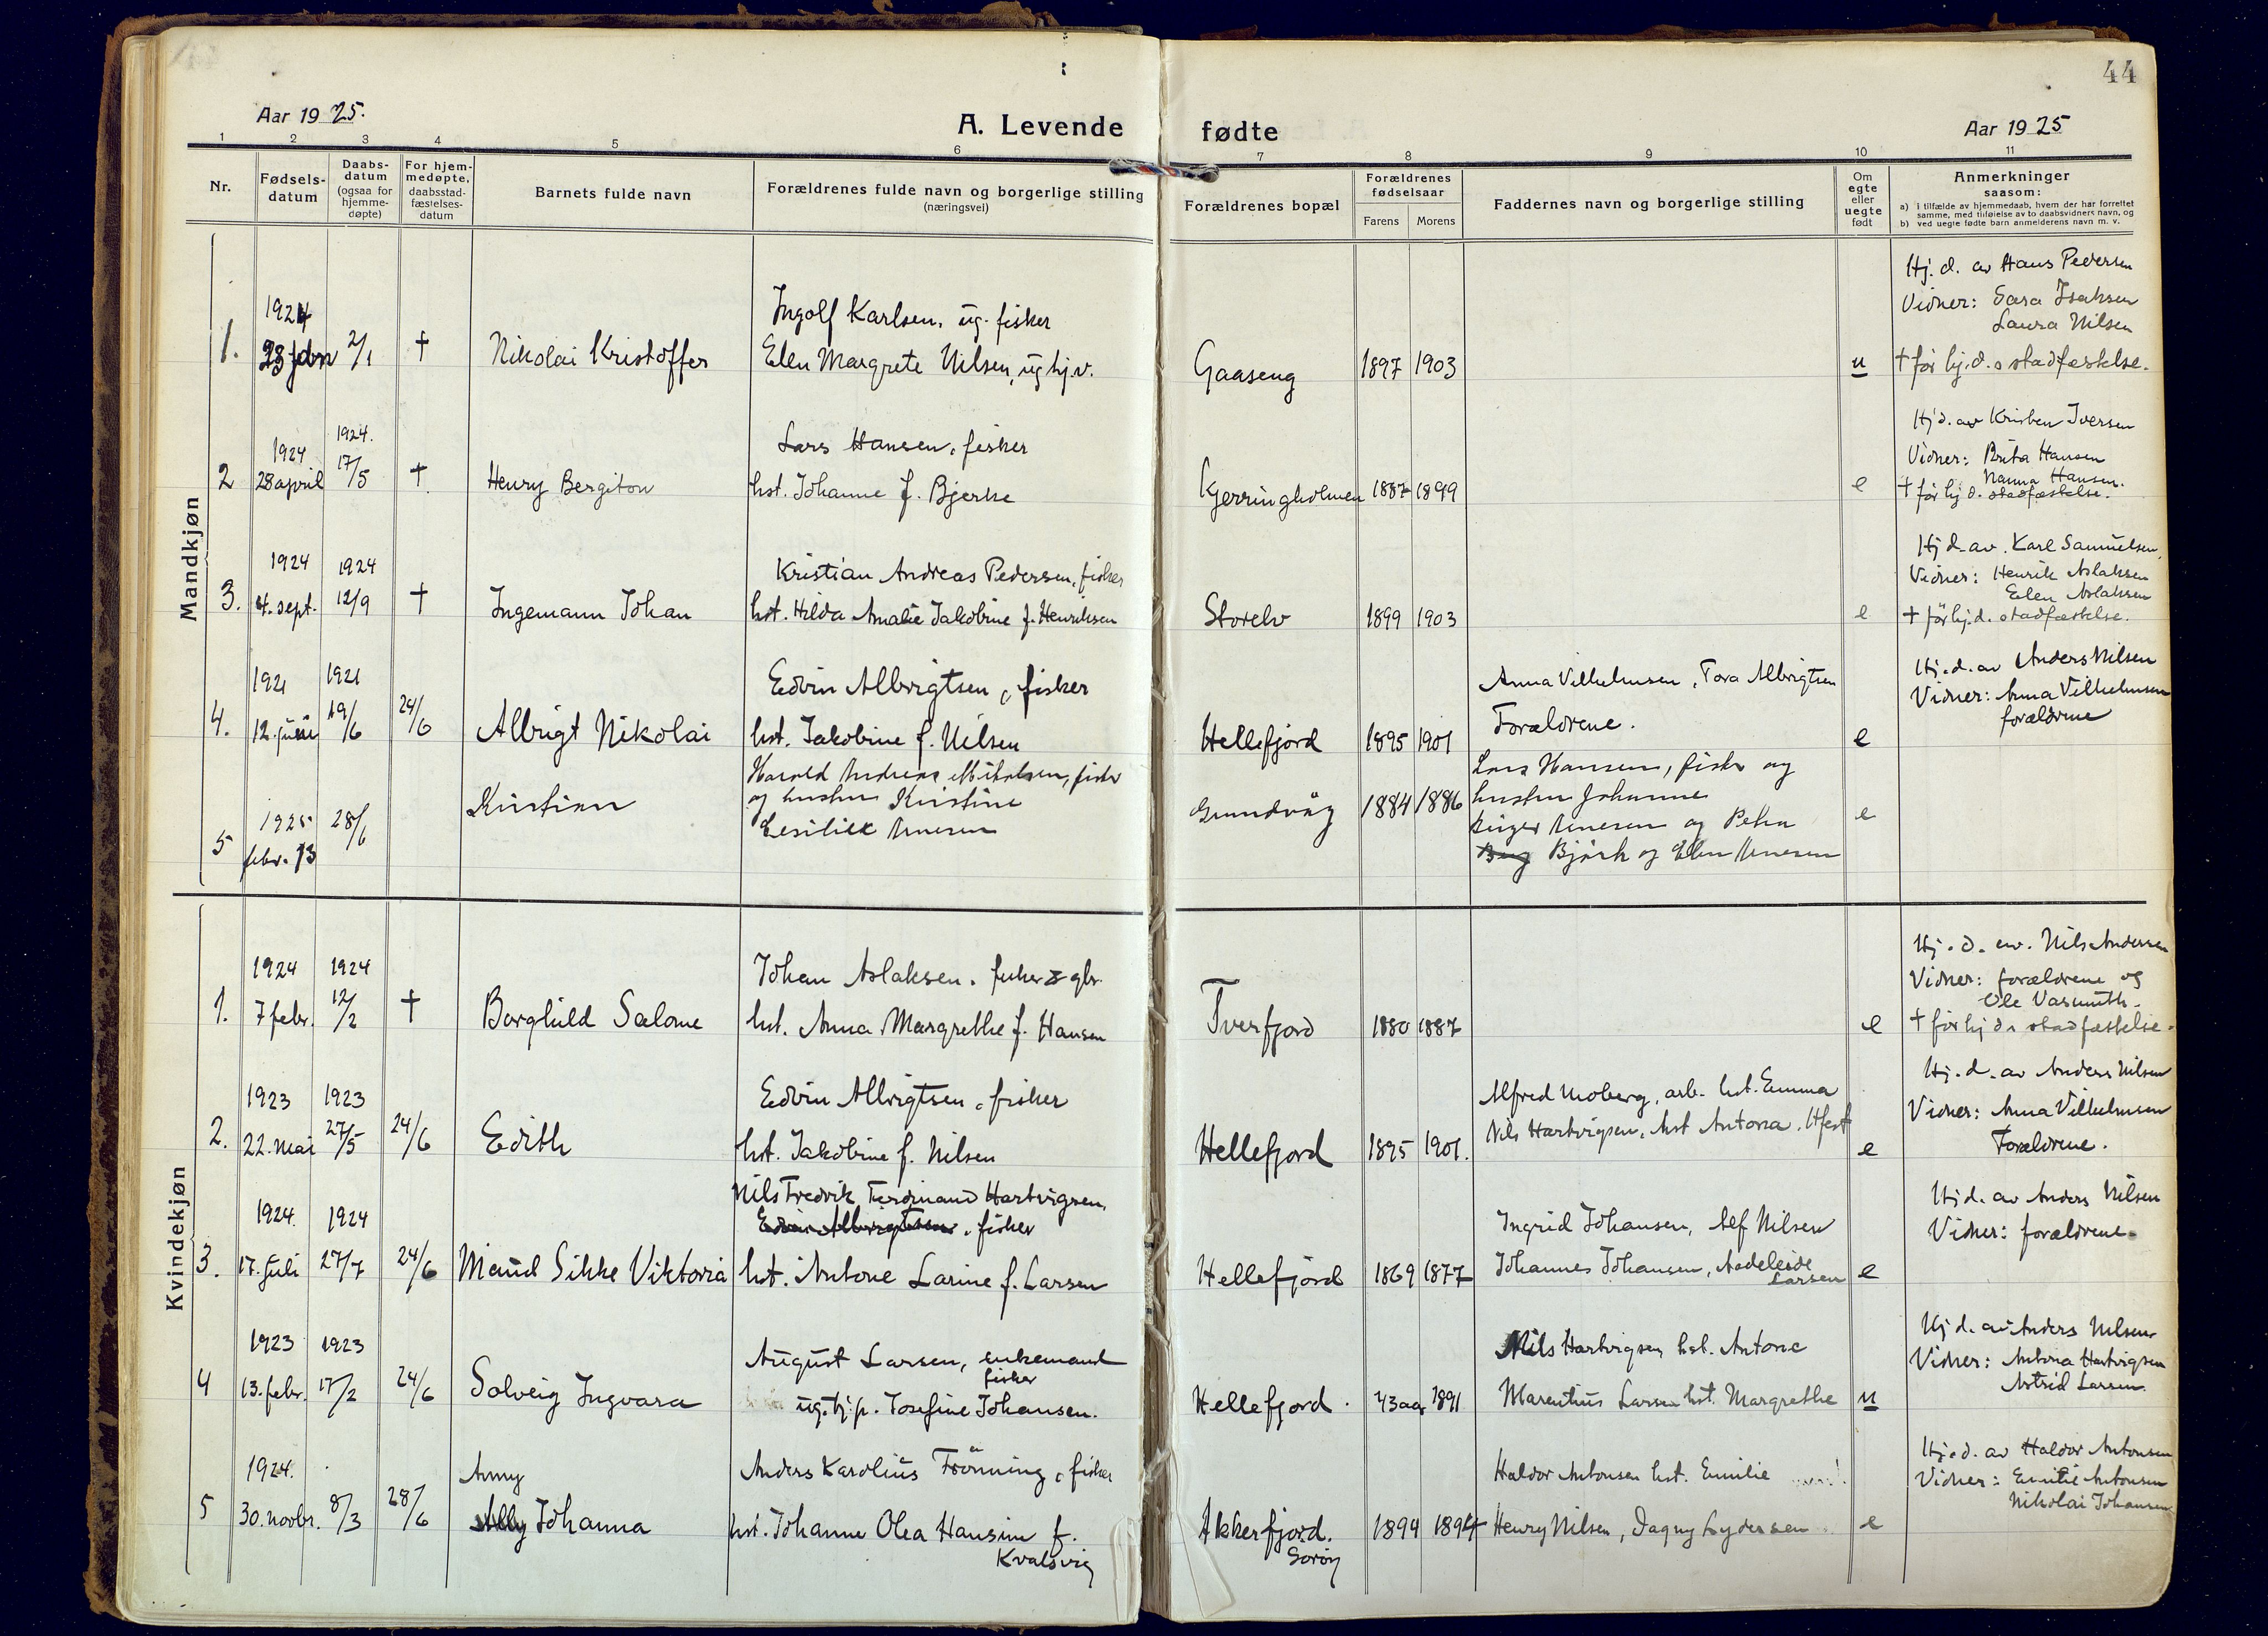 44
Aar 1925.
A. Levende fødte
Aar 1925
1 2 3 4 5 6 7 8 9 10 11
Nr.
Fødsels-
datum
Daabs-
datum
(ogsaa for
hjemme-
døpte)
For hjem-
medøpte,
daabsstad-
fæstelses-
datum
Barnets fulde navn
Forældrenes fulde navn og borgerlige stilling
(næringsvei)
Forældrenes bopæl
Forældrenes
fødselsaar
Farens Morens
Faddernes navn og borgerlige stilling
Om
egte
eller
uegte
født
Anmerkninger
saasom:
a) i tilfælde av hjemmedaab, hvem der har forrettet
samme, med tilføielse av to daabsvidners navn, og
b) ved uegte fødte barn anmelderens navn m. v.
Mandkjøn
1924
1. 2/1 † Nikolai Kristoffer
Ingolf Karlsen, ug. fisker
Elen Margrete Nilsen, ug hj.v.
Gaaseng 1897 1903 u
Hj. d. av Hans Pedersen
Vidner: Sara Isaksen
Laura Nilsen
† før hj. d. s stadfæstelse.
1924 1924.
2 28 april 17/5 † Henry Bergiton
Lars Hansen, fisker
hst. Johanne f. Bjerke
Kjerringholmen 1887 1899 e
Hj d. av Kristen Iversen
Vidner: Brita Hansen
Nanna Hansen.
† før hj d. stadfæstelse.
1924 1924
3. 4. sept. 12/9 † Ingemann Johan
Kristian Andreas Pedersen, fisker
hst. Hilda Amalie Jakobine f. Henriksen
Storelv 1899 1903 e
Hj d. av. Karl Samuelsen,
Vidner: Henrik Aslaksen
Elen Aslaksen
† før hj. d. stadfæstelse.
1921 1921
4. 12. juni 19/6 24/6 Albrigt Nikolai
Edvin Albrigtsen, fisker
hst. Jakobine f. Nilsen
Hellefjord 1895 1901
Anna Vilhelmsen, Tora Albrigtsen
Forældrene.
e
Hj. d. av Anders Nilsen
Vidner: Anna Vilhelmsen
forældrene
1925
5 febr. 13 28/6 Kristian
Harald Andreas Mikalsen, fisker
og hustru Kristine
Arnesen
Grundvåg 1884 1886
Lars Hansen, fisker og
hustru Johanne
Arnesen og Petra
Bjørk og Elen Arnesen
e
Kvindekjøn
1924 1924
1. 7 febr. 12/2 † Borghild Salome
Johan Aslaksen, fisker & gbr.
hst. Anna Margrethe f. Hansen
Tverfjord 1880 1887 e
Hj. d. av. Nils Andersen
Vidner: forældrene og
Ole Varsmuth.
† før hj d s stadfæstelse.
1923 1923
2. 22. mai 27/5 24/6 Edith
Edvin Albrigtsen, fisker
hst. Jakobine f. Nilsen
Hellefjord 1895 1901.
Alfred Moberg, arb. hst. Emma
Nils Hartvigsen, hst Antona. Hfest
e
Hj. d. av Anders Nilsen
Vidner: Anna Vilhelmsen
Forældrene.
1924. 1924
3. 17. juli 27/7 24/6 Maud Sikke Viktoria
Nils Fredrik Ferdinand Hartvigsen,
Edvin Albrigtsen, fisker
hst. Antone Larine f. Larsen
Hellefjord 1869 1877
Ingrid Johansen, Alf Nilsen
Johannes Johansen, Aadeleide
Larsen
e
Hj d. av Anders Nilsen
Vidner: forældrene.
1923 1923
4 13. febr. 17/2 24/6 Solveig Ingvara
August Larsen, enkemand
fisker
ug. tj. p. Josefine Johansen.
Hellefjord. 43 aar 1891
Nils Hartvigsen hst. Antone
Marentius Larsen hst. Margrethe
u
Hj d. av Anders Nilsen
Vidner: Antona Hartvigsen
Astrid Larsen.
1924.
5 30. novbr. 8/3 28/6
Anny
Johanna
Anders Karolius Frönning, fisker
hst. Johanne Olea Hansine f.
Kvalsvig
Akkerfjord.
Sørøy
1894 1894
Haldor Antonsen hst. Emilie
Henry Nilsen, Dagny Lydersen
e
Hj. d. av Haldor Antonsen
Vidner: Emilie Antonsen
Nikolai Johansen.